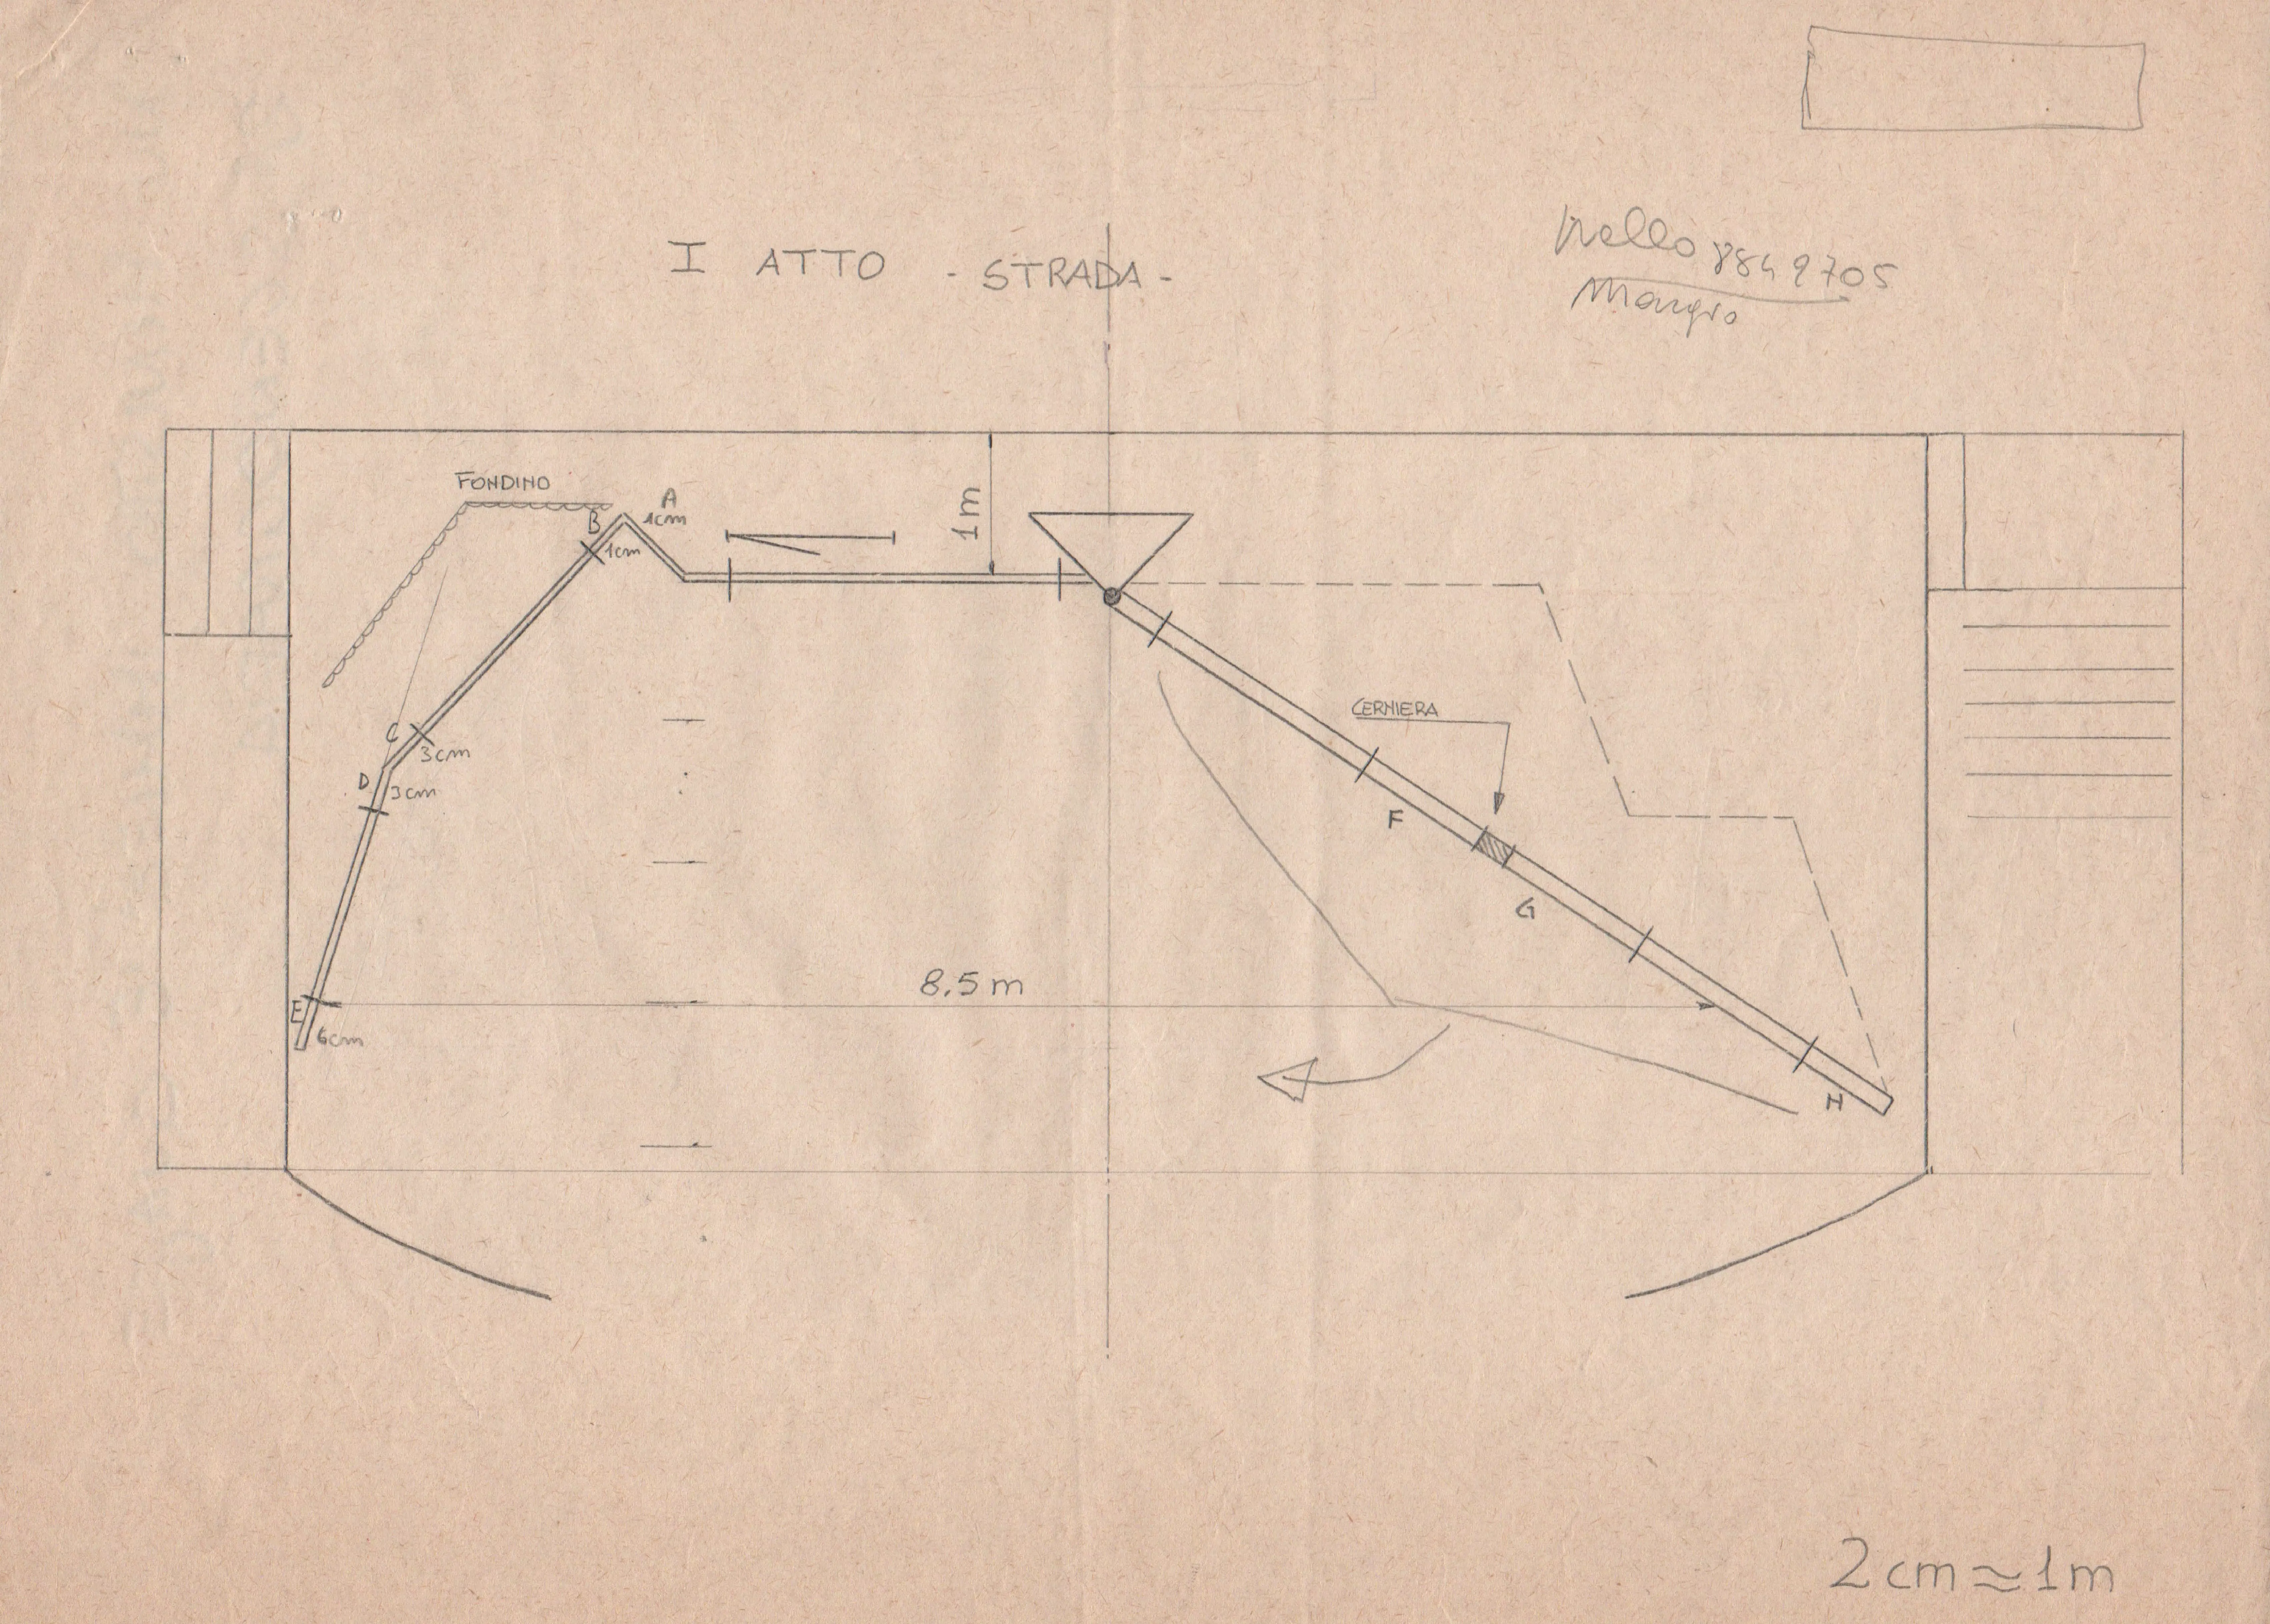 I ATTO - STRADA -
Nello 8849705
FONDINO
A
1cm
B
1cm
1m
C
3cm
D
3cm
CERNIERA
F
G
8.5m
E
6cm
H
2cm ≈ 1m